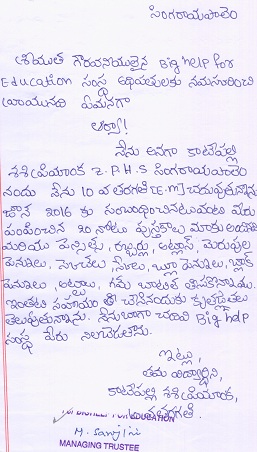 సింగరాయపాలెం
శ్రీయుత గౌరవనీయులైన Big help for
Education సంస్థ అధిపతులకు నమస్కరించి
వ్రాయునది ఏమనగా
ఆర్యా!
నేను అనగా కాటేపల్లి
శశిప్రియాంక Z.P.H.S సింగరాయపాలెం
నందు నేను 10వ తరగతి [E.M] చదువుతున్నాను
జూన్ 2016 కు సంబంధించినటువంటి మీరు
పంపించిన 20 నోటు పుస్తకాలు మాకు
మరియు పెన్సిళ్లు, రబ్బర్లు, అట్లాస్, మెరుపుల
పెనులు, స్కెచ్‌లు, స్కేలు, బ్లూ పెనులు, బ్లాక్
పెనులు, అట్టలు, గమ్ వాటిని తీసుకొన్నాము.
ఇంతటి సహాయం చేసినందుకు కృతజ్ఞతలు
తెలుపుతున్నాను. నేను బాగా చదివి Big help
సంస్థ పేరు నిలబెడతాను.
ఇట్లు,
తమ విద్యార్థిని,
కాటేపల్లి శశిప్రియాంక,
తరగతి.
FOR BIGHELP FOR EDUCATION
MANAGING TRUSTEE